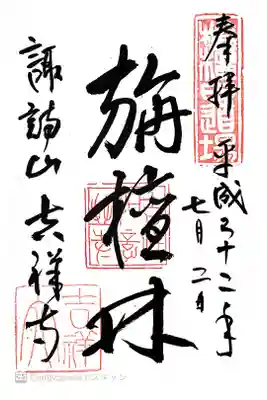 奉拝 平成二十二年
七月二日
旃檀林
諏訪山 吉祥寺